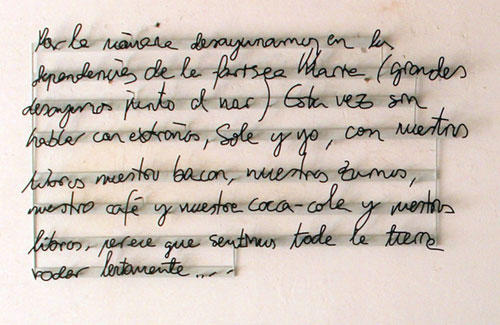 Por la mañana desayunamos en las
dependencias de la fortsea Marre (grandes
desayunos junto al mar) Esta vez sin
hablar con extraños, Sole y yo, con nuestros
libros nuestro bacon, nuestros zumos,
nuestro café y nuestra coca-cola y nuestros
libros, parece que sentimos toda la tierra
rodar lentamente....